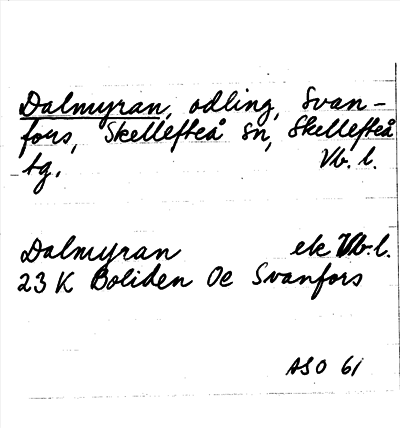 Dalmyran, odling, Svan-
fors, Skellefteå sn, Skellefteå
tg. Vb. l.
Dalmyran ek Vb. l.
23 K Boliden Oc Svanfors
ASO 61